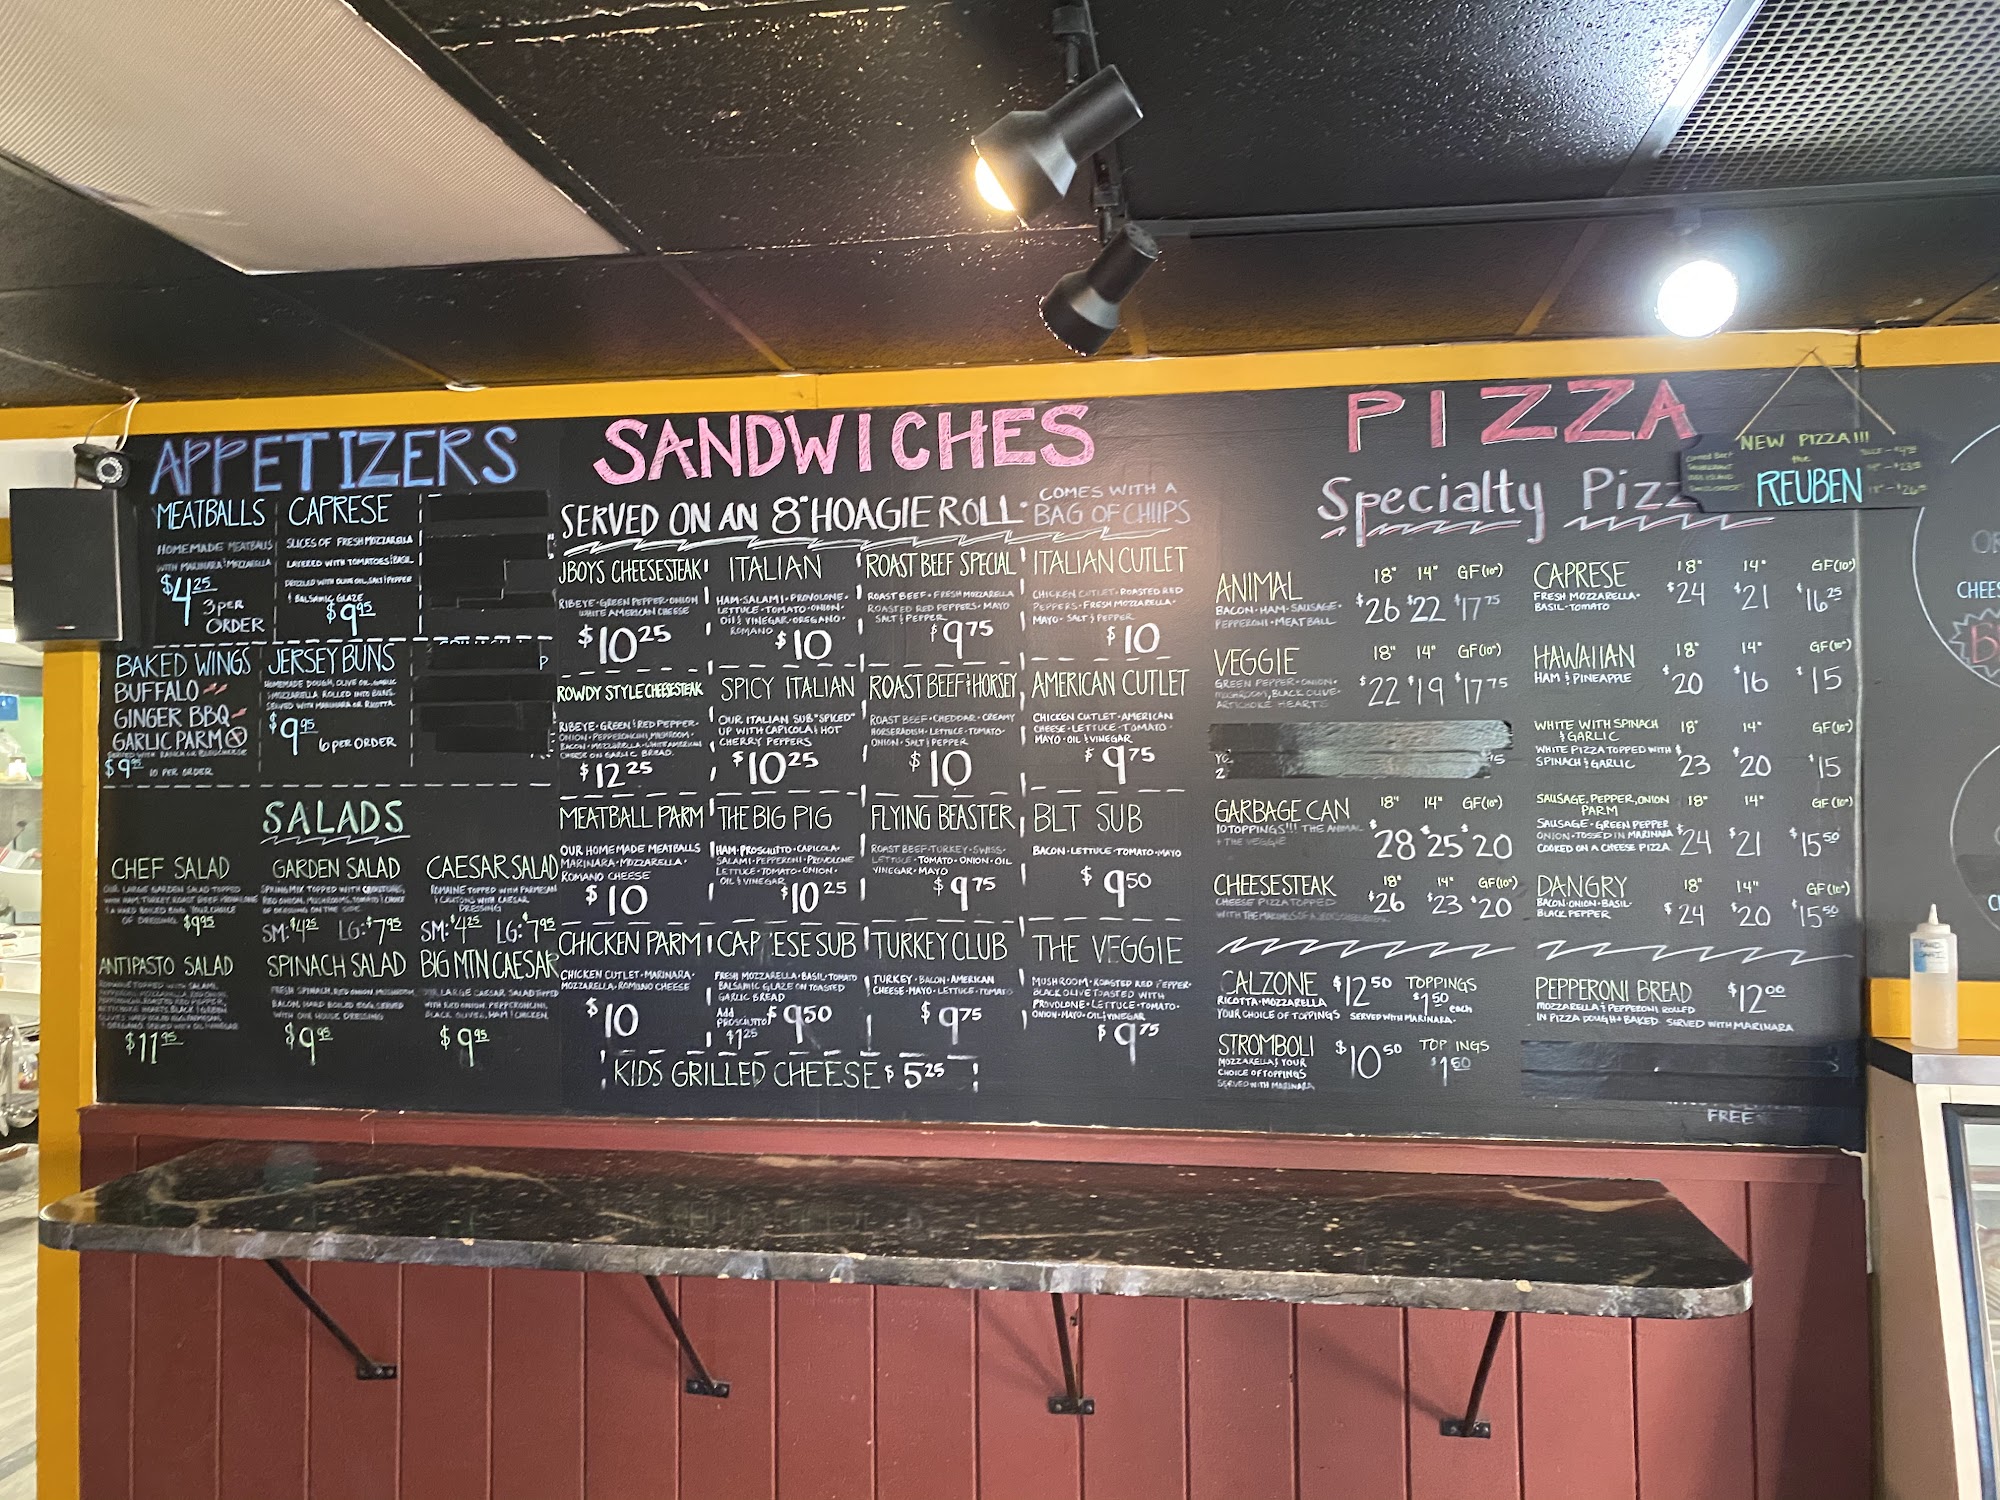 APPETIZERS
MEATBALLS
HOMEMADE MEATBALLS
WITH MARINARA & MOZZARELLA
$4.25
3 PER
ORDER
CAPRESE
SLICES OF FRESH MOZZARELLA
LAYERED WITH TOMATOES & BASIL
DRIZZLED WITH OLIVE OIL, SALT & PEPPER
& BALSAMIC GLAZE
$9.95
BAKED WINGS
BUFFALO
GINGER BBQ
GARLIC PARM
SERVED WITH RANCH OR BLEU CHEESE
$9.95 10 PER ORDER
JERSEY BUNS
HOMEMADE DOUGH, OLIVE OIL, GARLIC
& MOZZARELLA ROLLED INTO BUNS.
SERVED WITH MARINARA OR RICOTTA.
$9.95 6 PER ORDER
P
SALADS
CHEF SALAD
OUR LARGE GARDEN SALAD TOPPED
WITH HAM, TURKEY, ROAST BEEF, PROVOLONE
& A HARD BOILED EGG. YOUR CHOICE
OF DRESSING. $9.95
GARDEN SALAD
SPRING MIX TOPPED WITH CROUTONS,
RED ONION, MUSHROOMS, TOMATO & CHOICE
OF DRESSING ON THE SIDE
SM: $4.25 LG: $7.95
CAESAR SALAD
ROMAINE TOPPED WITH PARMESAN
& CROUTONS WITH CAESAR
DRESSING
SM: $4.25 LG: $7.95
ANTIPASTO SALAD
ROMAINE TOPPED WITH SALAMI,
$11.95
SPINACH SALAD
FRESH SPINACH, RED ONION, MUSHROOM,
BACON, HARD BOILED EGG. SERVED
WITH OUR HOUSE DRESSING
$9.95
BIG MTN CAESAR
OUR LARGE CAESAR SALAD TOPPED
WITH RED ONION, PEPERONCINI,
BLACK OLIVES, HAM & CHICKEN.
$9.95
SANDWICHES
SERVED ON AN 8" HOAGIE ROLL
COMES WITH A
BAG OF CHIIPS
JBOYS CHEESESTEAK
RIBEYE • GREEN PEPPER • ONION
WHITE AMERICAN CHEESE
$10.25
ITALIAN
HAM • SALAMI • PROVOLONE •
LETTUCE • TOMATO • ONION •
OIL & VINEGAR • OREGANO •
ROMANO $10
ROAST BEEF SPECIAL
ROAST BEEF • FRESH MOZZARELLA
ROASTED RED PEPPERS • MAYO
SALT & PEPPER
$9.75
ITALIAN CUTLET
CHICKEN CUTLET • ROASTED RED
PEPPERS • FRESH MOZZARELLA •
MAYO • SALT & PEPPER
$10
ROWDY STYLE CHEESESTEAK
RIBEYE • GREEN & RED PEPPER •
ONION • PEPPERONCINI, MUSHROOM •
BACON • MOZZARELLA • WHITE AMERICAN
CHEESE ON GARLIC BREAD.
$12.25
SPICY ITALIAN
OUR ITALIAN SUB "SPICED"
UP WITH CAPICOLA & HOT
CHERRY PEPPERS
$10.25
ROAST BEEF & HORSEY
ROAST BEEF • CHEDDAR • CREAMY
HORSERADISH • LETTUCE • TOMATO •
ONION • SALT & PEPPER
$10
AMERICAN CUTLET
CHICKEN CUTLET • AMERICAN
CHEESE • LETTUCE • TOMATO •
MAYO • OIL & VINEGAR
$9.75
MEATBALL PARM
OUR HOMEMADE MEATBALLS
MARINARA • MOZZARELLA •
ROMANO CHEESE
$10
THE BIG PIG
HAM • PROSCIUTTO • CAPICOLA •
SALAMI • PEPPERONI • PROVOLONE
LETTUCE • TOMATO • ONION •
OIL & VINEGAR $10.25
FLYING BEASTER
ROAST BEEF • TURKEY • SWISS •
LETTUCE • TOMATO • ONION • OIL
VINEGAR • MAYO
$9.75
BLT SUB
BACON • LETTUCE • TOMATO • MAYO
$9.50
CHICKEN PARM
CHICKEN CUTLET • MARINARA •
MOZZARELLA • ROMANO CHEESE
$10
CAP ESE SUB
FRESH MOZZARELLA • BASIL • TOMATO
BALSAMIC GLAZE ON TOASTED
GARLIC BREAD
Add
PROSCIUTTO
$1.25
$9.50
TURKEY CLUB
TURKEY • BACON • AMERICAN
CHEESE • MAYO • LETTUCE • TOMATO
$9.75
THE VEGGIE
MUSHROOM • ROASTED RED PEPPER •
BLACK OLIVE TOASTED WITH
PROVOLONE • LETTUCE • TOMATO •
ONION • MAYO • OIL & VINEGAR
$9.75
KIDS GRILLED CHEESE $5.25
PIZZA
Specialty Pizz
NEW PIZZA!!!
the
REUBEN
ANIMAL 18" 14" GF(10")
BACON • HAM • SAUSAGE •
PEPPERONI • MEATBALL
$26 $22 $17.75
VEGGIE 18" 14" GF(10")
GREEN PEPPER • ONION •
MUSHROOM, BLACK OLIVE •
ARTICHOKE HEARTS
$22 $19 $17.75
GARBAGE CAN 18" 14" GF(10")
10 TOPPINGS!!! THE ANIMAL
+ THE VEGGIE
$28 $25 $20
CHEESESTEAK 18" 14" GF(10")
CHEESE PIZZA TOPPED
$26 $23 $20
CALZONE $12.50 TOPPINGS
RICOTTA • MOZZARELLA $1.50 each
YOUR CHOICE OF TOPPINGS SERVED WITH MARINARA.
STROMBOLI $10.50 TOP INGS
MOZZARELLA & YOUR
CHOICE OF TOPPINGS $1.50
SERVED WITH MARINARA
CAPRESE 18" 14" GF(10")
FRESH MOZZARELLA •
BASIL • TOMATO
$24 $21 $16.25
HAWAIIAN 18" 14" GF(10")
HAM & PINEAPPLE
$20 $16 $15
WHITE WITH SPINACH 18" 14" GF(10")
& GARLIC
WHITE PIZZA TOPPED WITH
SPINACH & GARLIC
$23 $20 $15
SAUSAGE, PEPPER, ONION 18" 14" GF(10")
PARM
SAUSAGE • GREEN PEPPER
ONION • TOSSED IN MARINARA
COOKED ON A CHEESE PIZZA
$24 $21 $15.50
DANGRY 18" 14" GF(10")
BACON • ONION • BASIL •
BLACK PEPPER
$24 $20 $15.50
PEPPERONI BREAD $12.00
MOZZARELLA & PEPPERONI ROLLED
IN PIZZA DOUGH & BAKED SERVED WITH MARINARA
FREE